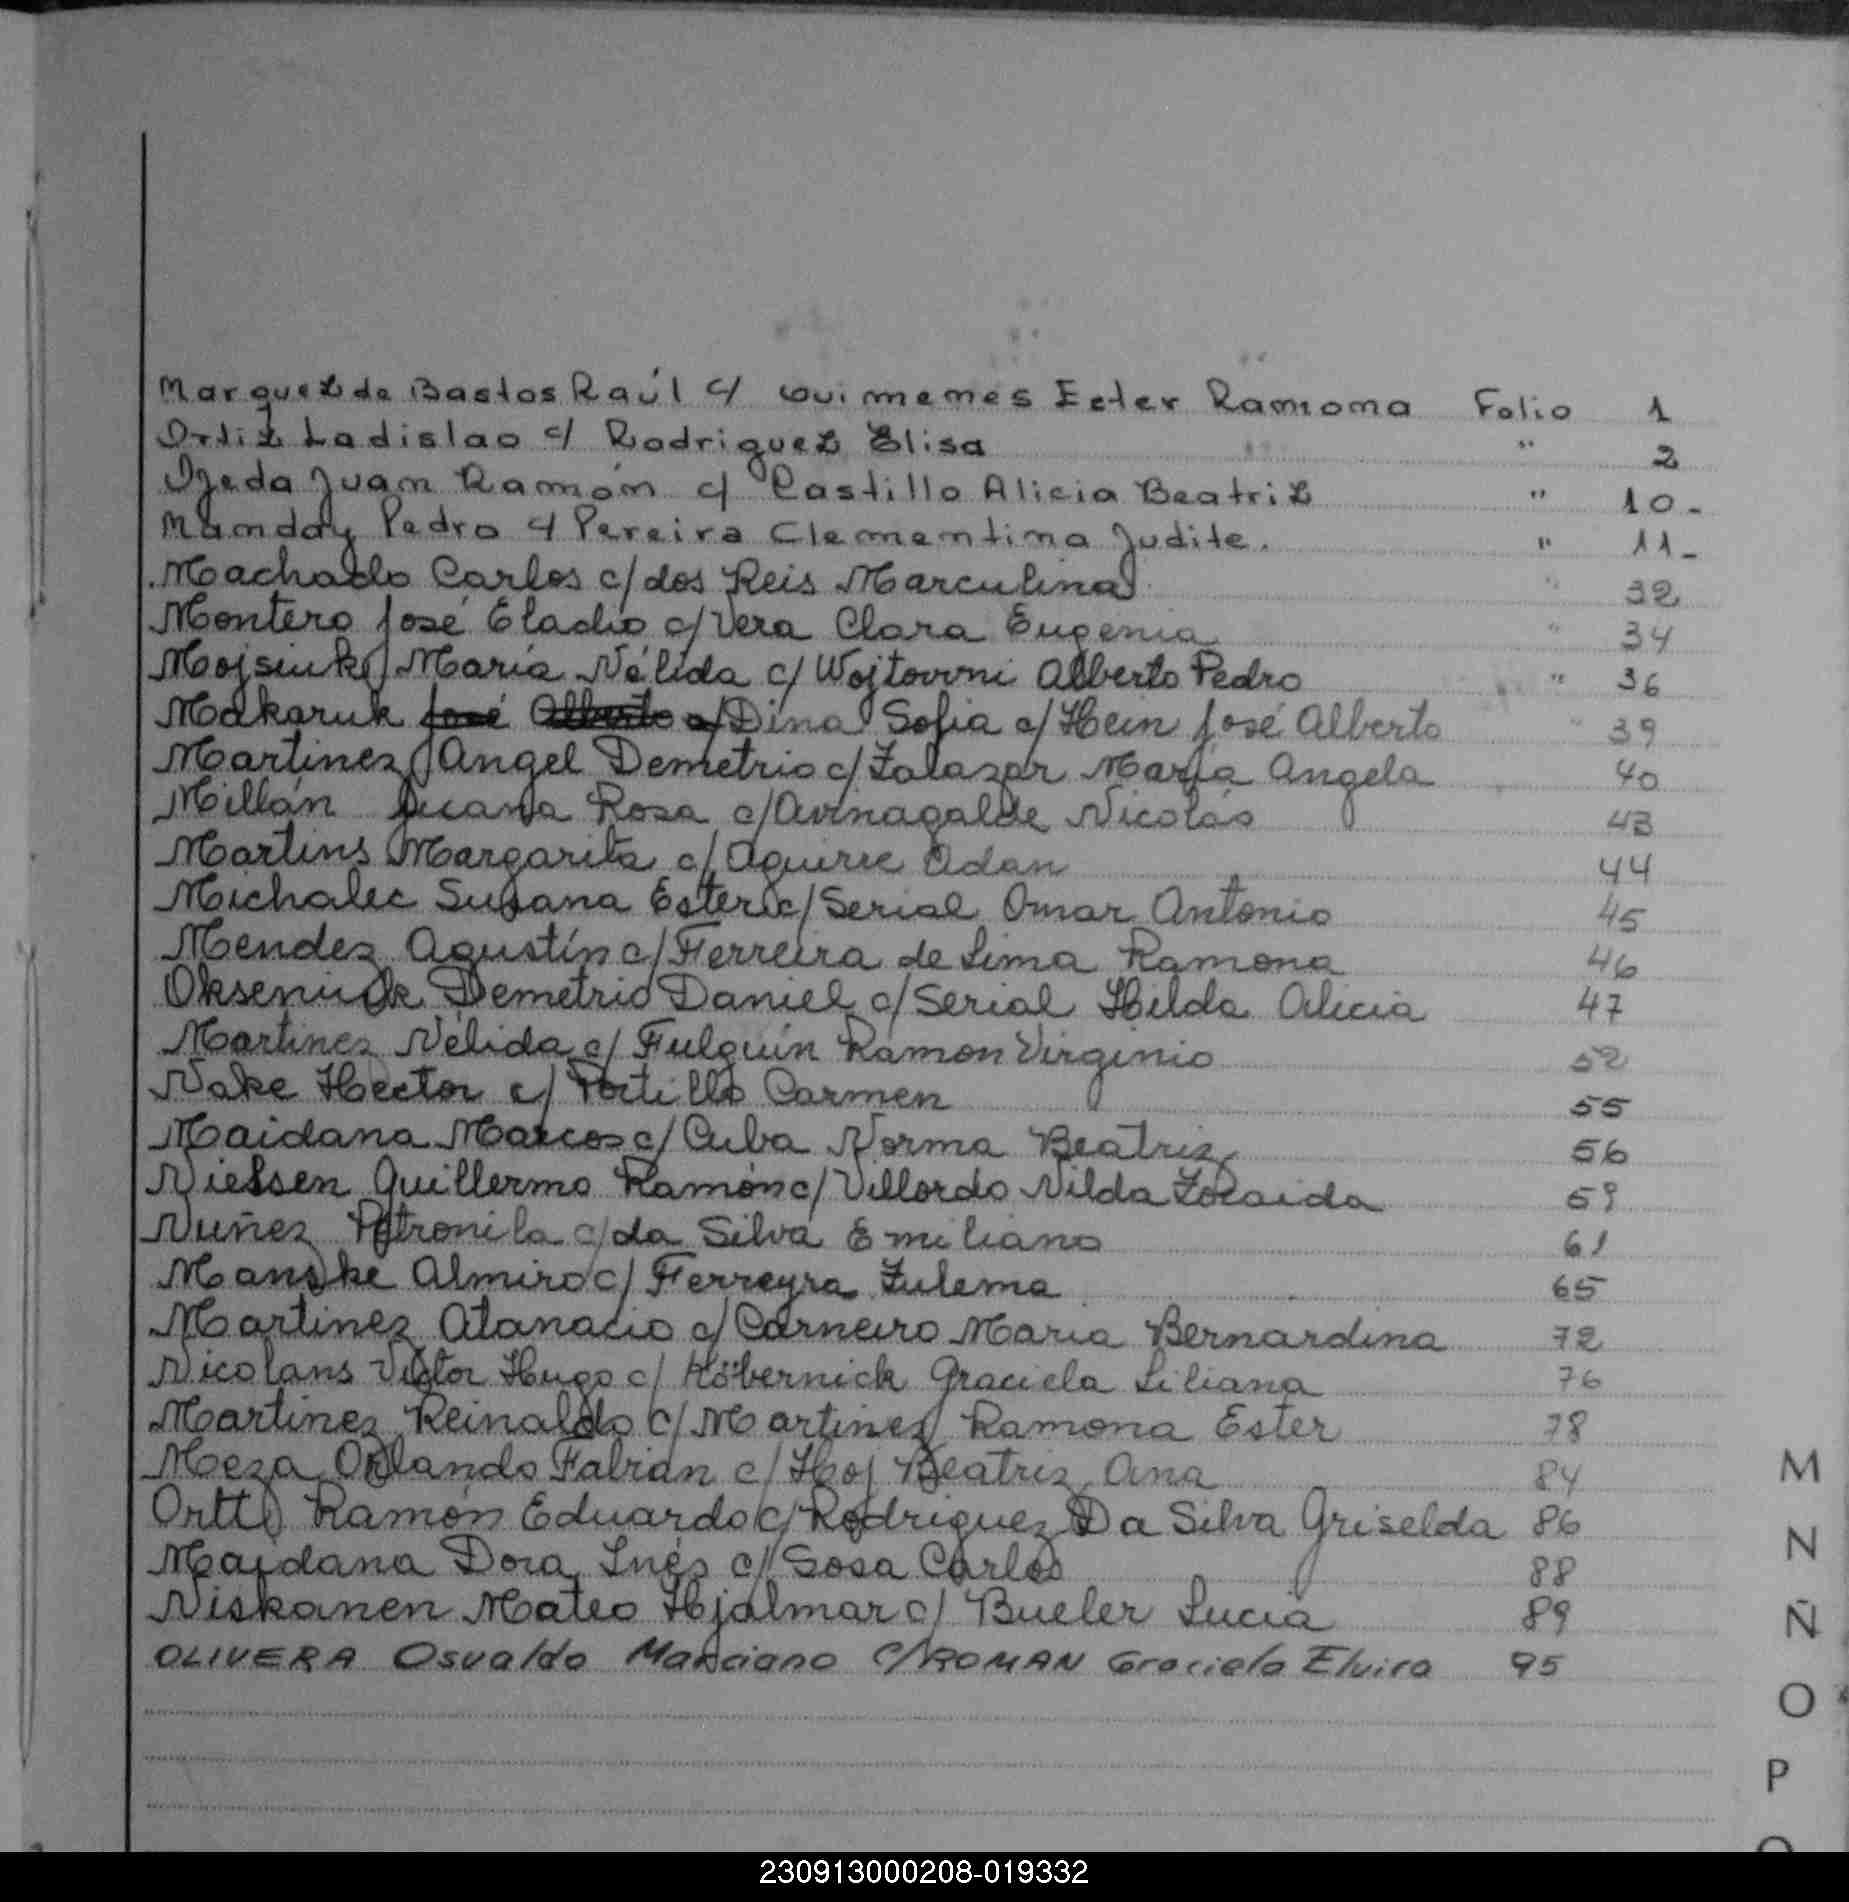 Marquez de Bastos Raúl c/ Guimenes Ester Ramona Folio 1
Ortiz Ladislao c/ Rodriguez Elisa " 2
Ojeda Juan Ramón c/ Castillo Alicia Beatriz " 10-
Munday Pedro c/ Pereira Clementina Judite. " 11-
Machado Carlos c/ dos Reis Marculina " 32
Montero José Eladio c/ Vera Clara Eugenia " 34
Mojsiuk María Nélida c/ Wojtovvni Alberto Pedro " 36
Makaruk José Alberto c/ Dina Sofia c/ Hein José Alberto " 39
Martinez Angel Demetrio c/ Zalazar María Angela 40
Millán Juana Rosa c/ Avinagalde Nicolás 43
Martins Margarita c/ Aguirre Adan 44
Michalec Susana Ester c/ Serial Omar Antonio 45
Mendez Agustín c/ Ferreira de Lima Ramona 46
Okseniuk Demetrio Daniel c/ Serial Hilda Alicia 47
Martinez Nélida c/ Fulguín Ramon Virginio 52
Nake Hector c/ Portillo Carmen 55
Maidana Marcos c/ Cuba Norma Beatriz 56
Nielsen Guillermo Ramón c/ Villordo Nilda Zoraida 59
Nuñez Petronila c/ da Silva Emiliano 61
Manske Almiro c/ Ferreyra Zulema 65
Martinez Atanacio c/ Carneiro Maria Bernardina 72
Nicolans Victor Hugo c/ Köbernick Graciela Liliana 76
Martinez Reinaldo c/ Martinez Ramona Ester 78
Meza Orlando Fabian c/ Hoj Beatriz Ana 84
Ortt Ramón Eduardo c/ Rodriguez Da Silva Griselda 86
Maidana Dora Inés c/ Sosa Carlos 88
Niskanen Mateo Hjalmar c/ Bueler Lucia 89
OLIVERA Osvaldo Marciano C/ ROMAN Graciela Elvira 95
M
N
Ñ
O
P
230913000208-019332